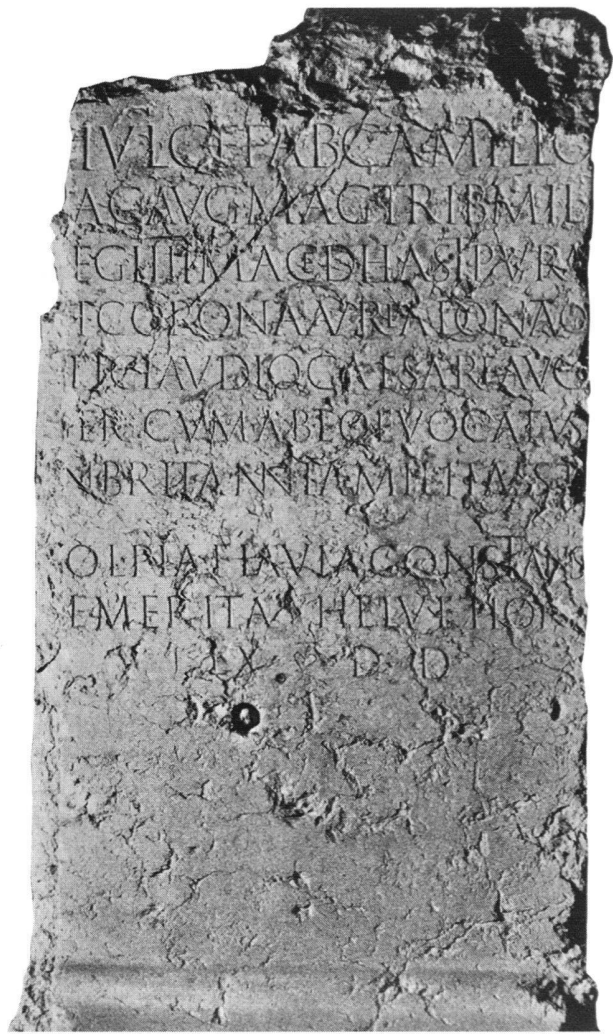 IVL C F FAB CAMILLO
AC AVG MAG TRIB MIL
EG IIII MAC D HAST PVRA
T CORONA AVREA DONATO
TI CLAVDIO CAESARE AVG
TER CVM AB EO EVOCATVS
N BRITANNIA MILITASSET
OL PIA FLAVIA CONSTANS
EMERITA HELVETIOR
D D